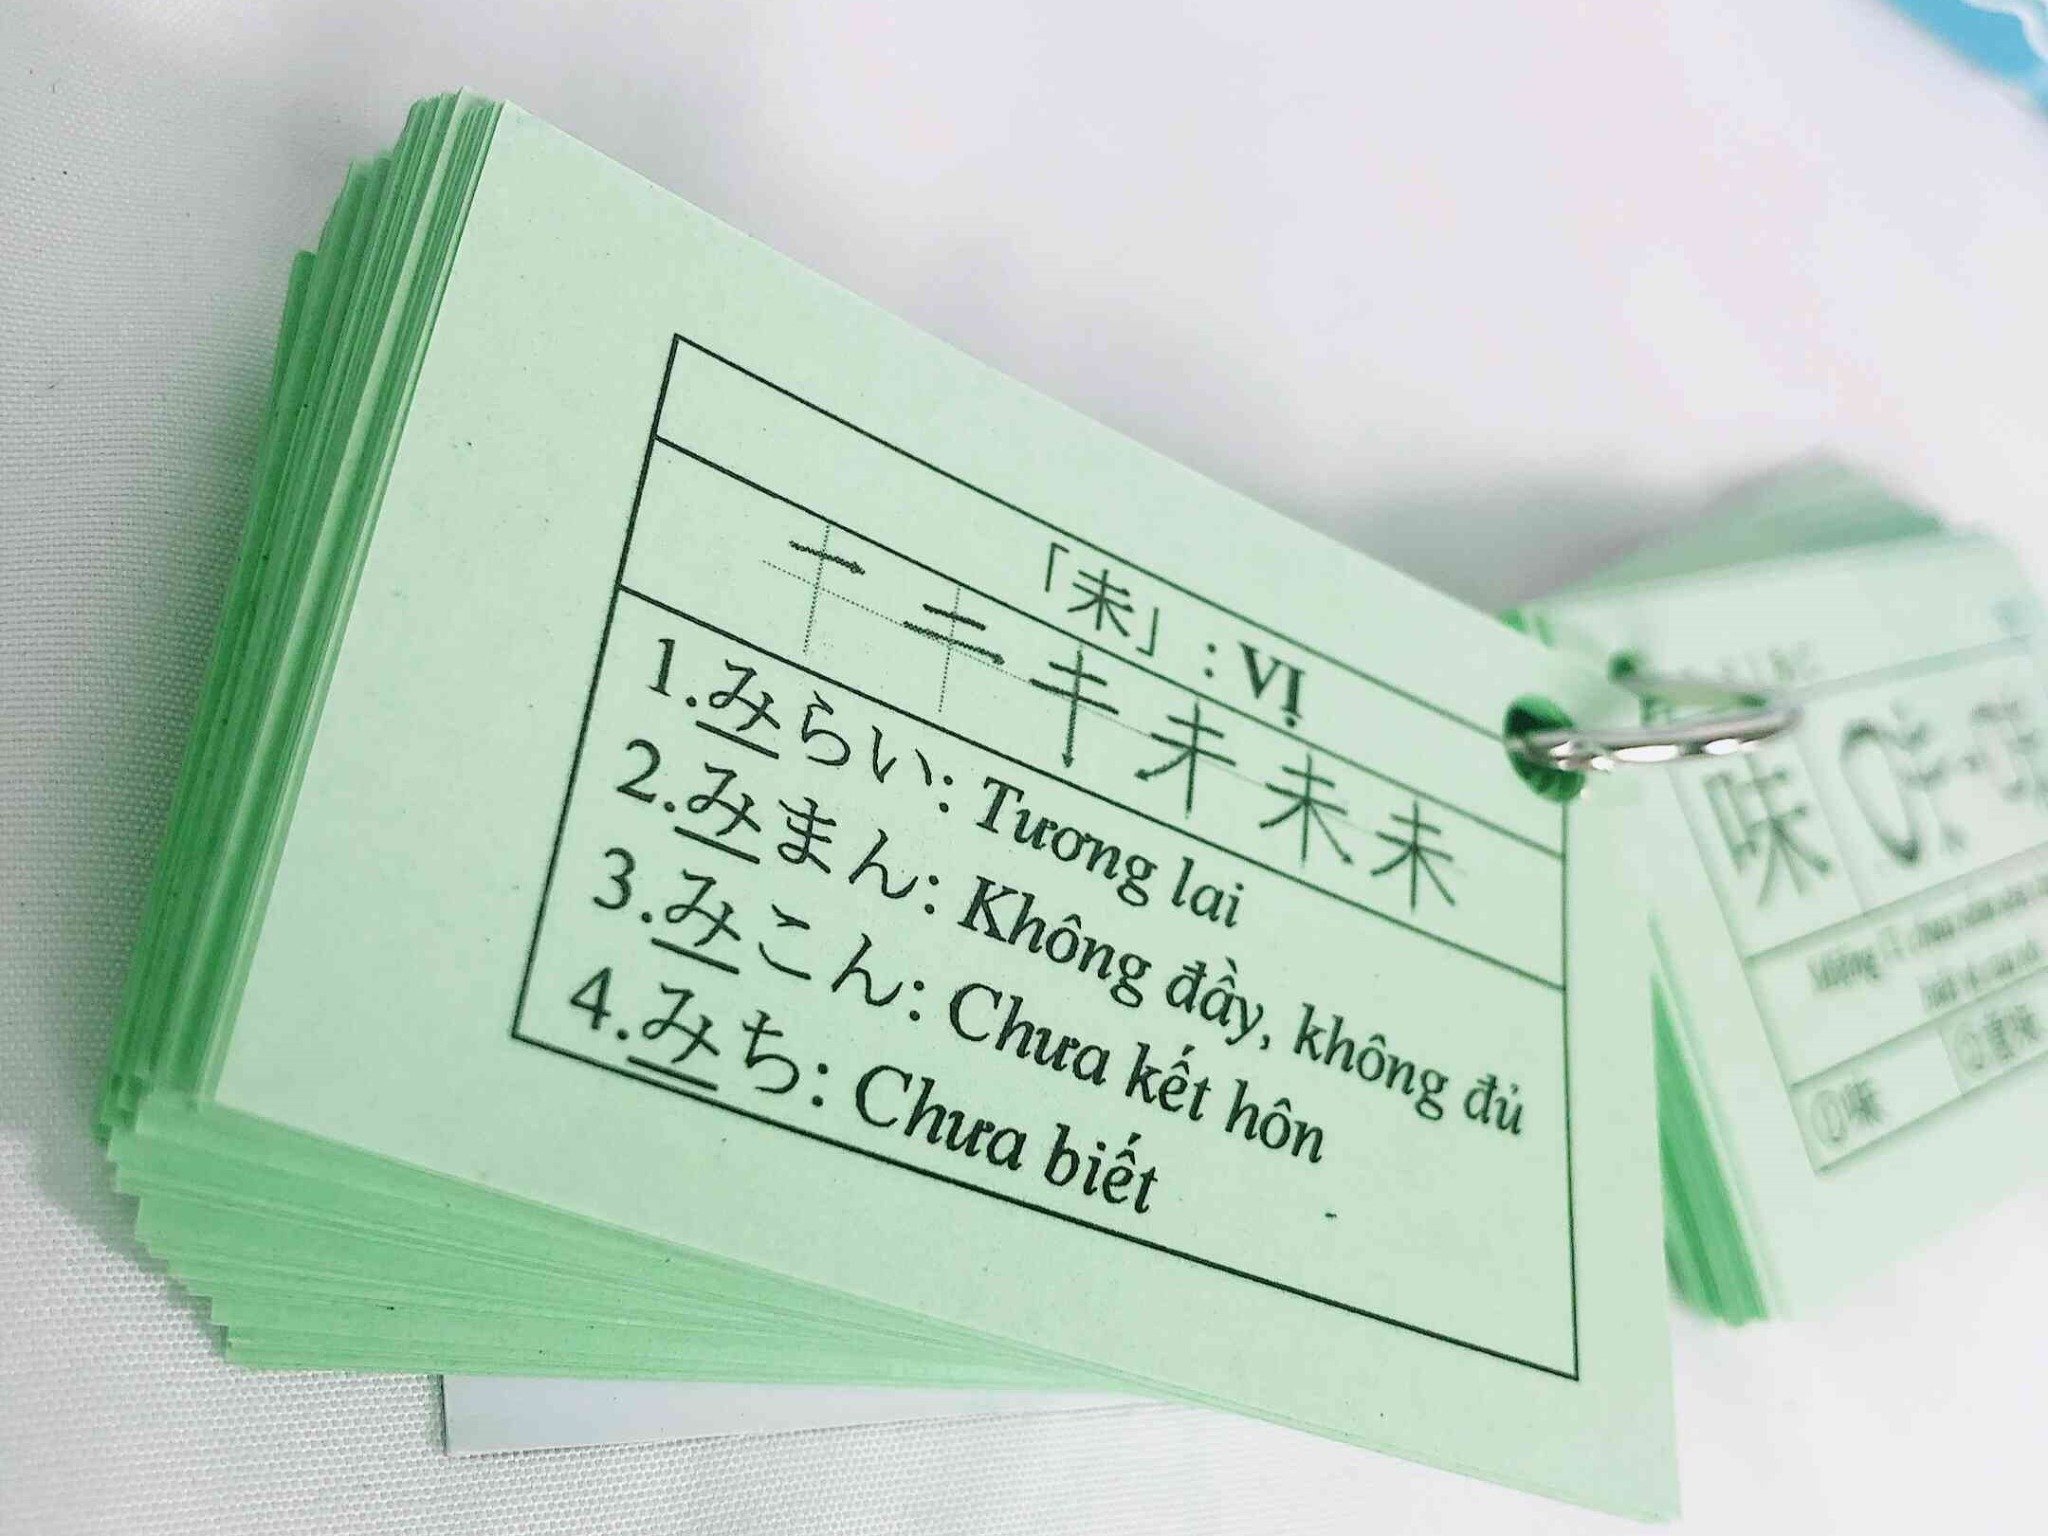 「未」: VỊ
未
1.みらい: Tương lai
2.みまん: Không đầy, không đủ
3.みこん: Chưa kết hôn
4.みち: Chưa biết
味
①味